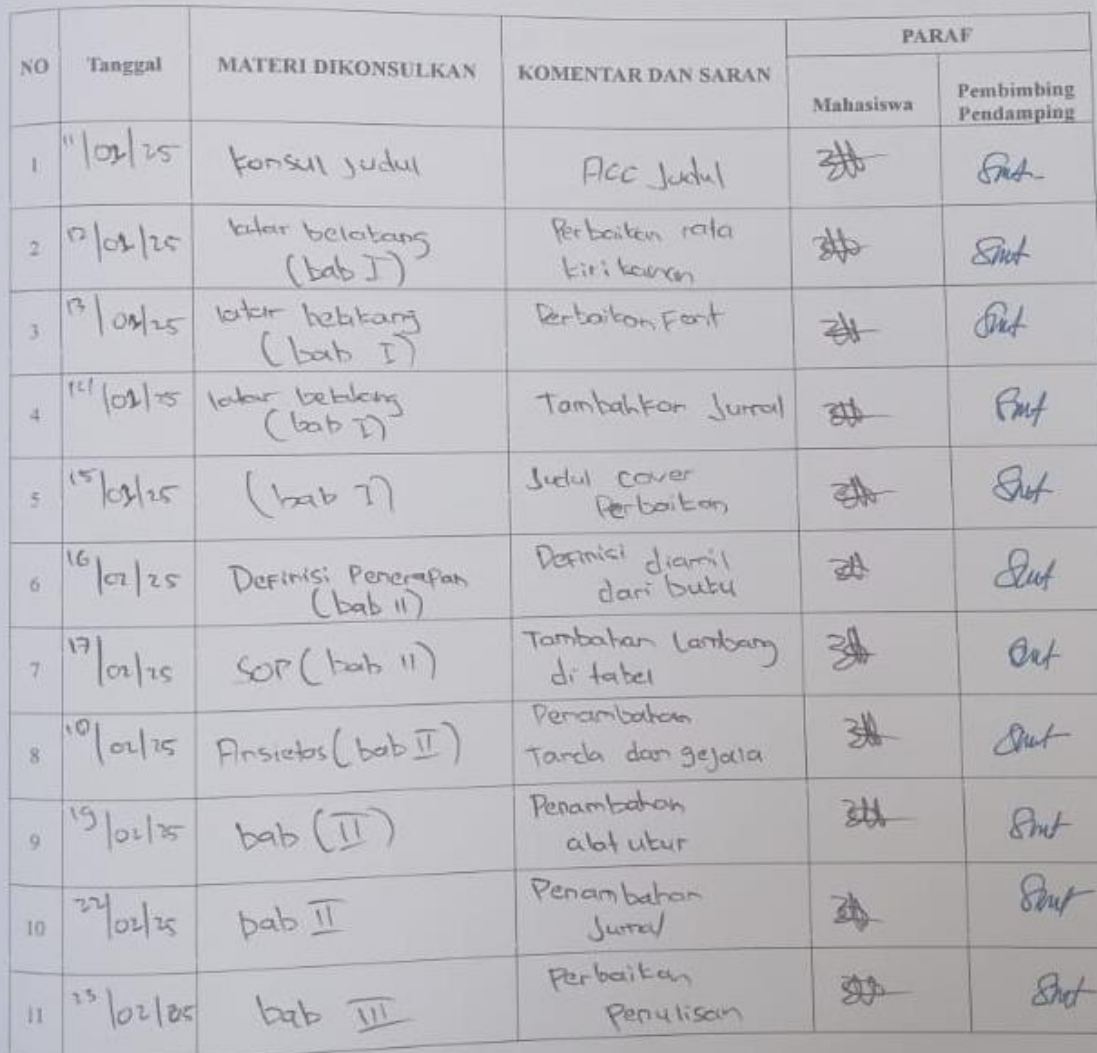 PARAF
NO Tanggal MATERI DIKONSULKAN KOMENTAR DAN SARAN
Mahasiswa Pembimbing
Pendamping
1 11/02/25 Konsul Judul Acc Judul
2 12/02/25 latar belakang Perbaikan rata
(bab I) kiri kanan
3 13/02/25 latar belakang Perbaikan Font
(bab I)
4 14/02/25 latar belakang Tambahkan Jurnal
(bab I)
5 15/02/25 (bab I) Judul cover
Perbaikan
6 16/02/25 Definisi Penerapan Definisi diamil
(bab II) dari buku
7 17/02/25 SOP (bab II) Tambahan Lambang
di tabel
8 /02/25 Ansietas (bab II) Penambahan
Tanda dan gejala
9 19/02/25 bab (II) Penambahan
alat ukur
10 22/02/25 bab II Penambahan
Jurnal
11 23/02/25 bab III Perbaikan
Penulisan